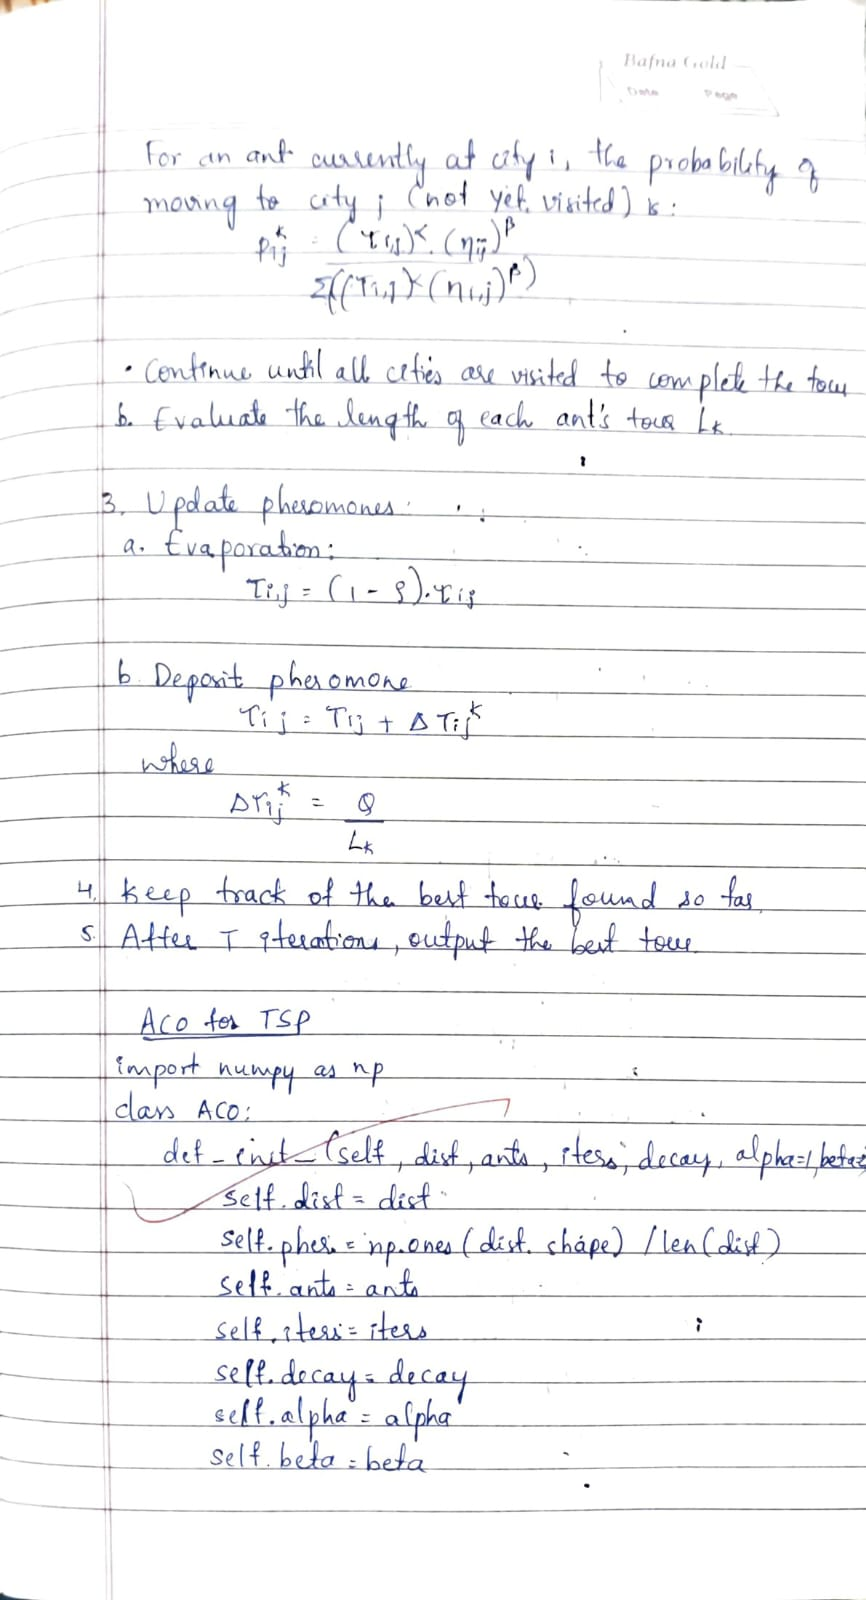 Bafna Gold
Date Page
For an ant currently at city i, the probability of
moving to city j (not yet visited) is:
Pij^k = (τij)^α . (ηij)^β
Σ((τi,j)^α (ηi,j)^β)
• Continue until all cities are visited to complete the tour
b. Evaluate the length of each ant's tour Lk
3. Update pheromones:
a. Evaporation:
τi,j = (1 - ρ).τij
b. Deposit pheromone
τij = τij + Δτij^k
where
Δτij^k = Q
Lk
4. Keep track of the best tour found so far.
5. After T iterations, output the best tour
ACO for TSP
import numpy as np
class ACO:
def _init_ (self, dist, ants, iters, decay, alpha=1, beta=
self.dist = dist
self.pher = np.ones (dist.shape) / len(dist)
self.ants = ants
self.iters = iters
self.decay = decay
self.alpha = alpha
self.beta = beta